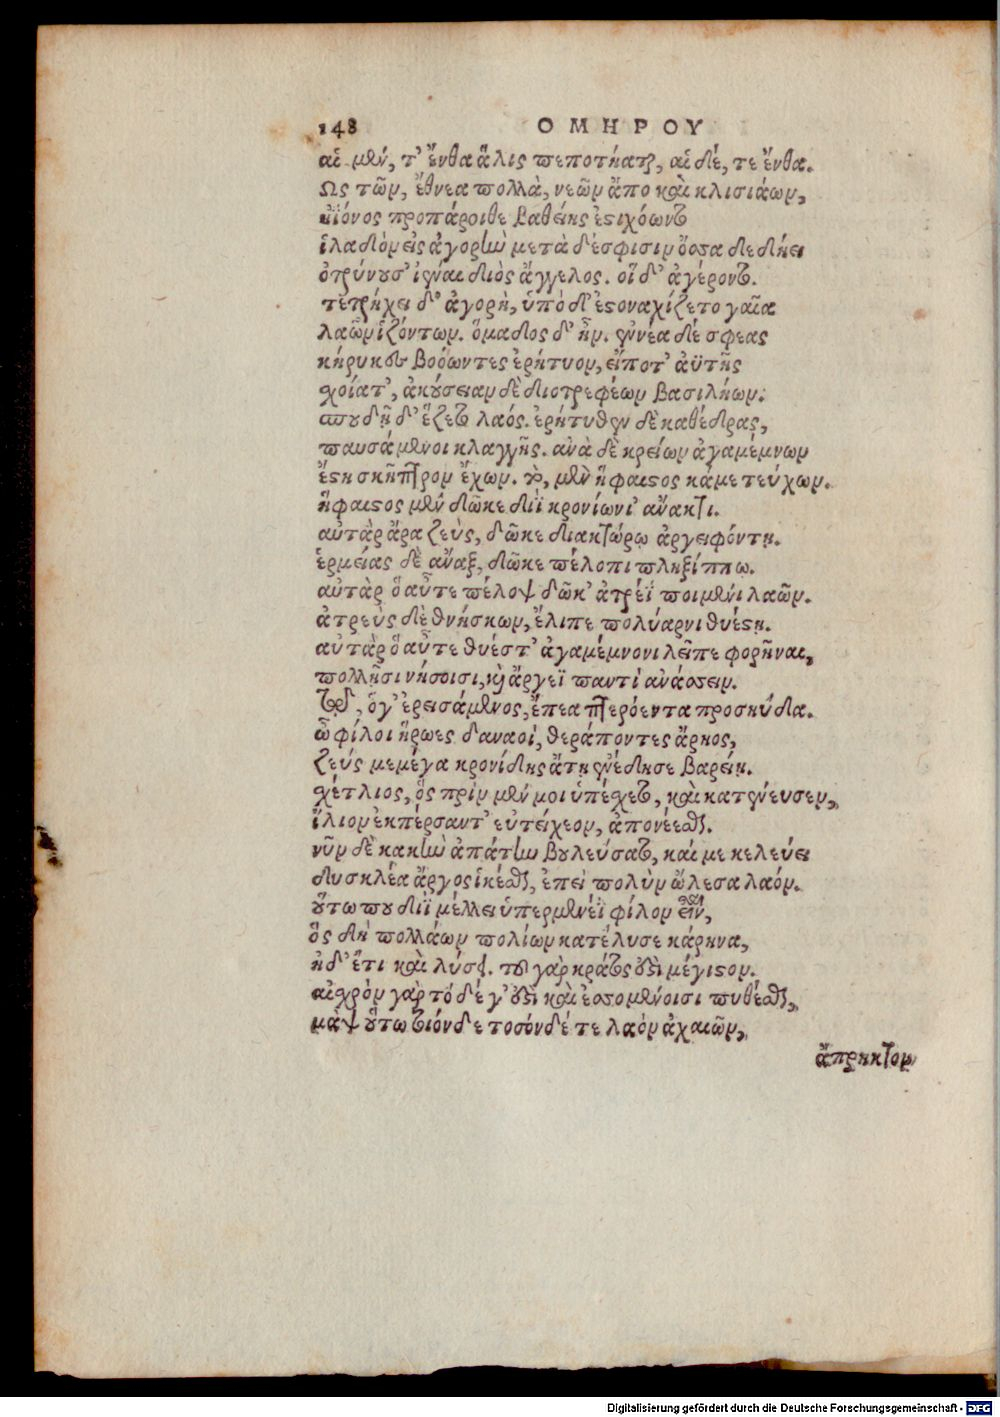 148 ΟΜΗΡΟΥ
αἱ μέν, τ' ἔνθα ἅλις πεποτήαται, αἱ δέ, τε ἔνθα.
Ως τῶν, ἔθνεα πολλὰ, νεῶν ἄπο καὶ κλισιάων,
ἠϊόνος προπάροιθε βαθείης ἐστιχόωντο
ἰλαδὸν εἰς ἀγορὴν μετὰ δέ σφισιν ὄσσα δεδήει
ὀτρύνουσ' ἰέναι διὸς ἄγγελος. οἵ δ' ἀγέροντο.
τετρήχει δ' ἀγορὴ, ὑπὸ δ' ἐστοναχίζετο γαῖα
λαῶν ἱζόντων. ὅμαδος δ' ἦν. ἐννέα δέ σφεας
κήρυκες βοόωντες ἐρήτυον, εἴποτ' ἀϋτῆς
σχοίατ', ἀκούσειαν δὲ διοτρεφέων βασιλήων.
σπουδῇ δ' ἕζετο λαός. ἐρήτυθεν δὲ καθέδρας,
παυσάμενοι κλαγγῆς. ἀνὰ δὲ κρείων ἀγαμέμνων
ἔστη σκῆπτρον ἔχων. τὸ, μὲν ἥφαιστος κάμε τεύχων.
ἥφαιστος μὲν δῶκε διῒ κρονίωνι ἄνακτι.
αὐτὰρ ἄρα ζεὺς, δῶκε διακτόρῳ ἀργειφόντῃ.
ἑρμείας δὲ ἄναξ, δῶκε πέλοπι πληξίππῳ.
αὐτὰρ ὃ αὖτε πέλοψ δῶκ' ἀτρέϊ ποιμένι λαῶν.
ἀτρεὺς δὲ θνήσκων, ἔλιπε πολύαρνι θυέστῃ.
αὐτὰρ ὃ αὖτε θυέστ' ἀγαμέμνονι λεῖπε φορῆναι,
πολλῇσι νήσοισι, καὶ ἄργεϊ παντὶ ἀνάσσειν.
Τῷ, ὅγ' ἐρεισάμενος, ἔπεα πτερόεντα προσηύδα.
ὦ φίλοι ἥρωες δαναοὶ, θεράποντες ἄρηος,
ζεύς με μέγα κρονίδης ἄτῃ ἐνέδησε βαρείῃ.
σχέτλιος, ὃς πρὶν μέν μοι ὑπέσχετο, καὶ κατένευσεν,
ἴλιον ἐκπέρσαντ' εὐτείχεον, ἀπονέεσθαι.
νῦν δὲ κακὴν ἀπάτην βουλεύσατο, καί με κελεύει
δυσκλέα ἄργος ἱκέσθαι, ἐπεὶ πολὺν ὤλεσα λαόν.
οὕτω που διῒ μέλλει ὑπερμενέϊ φίλον εἶναι,
ὃς δὴ πολλάων πολίων κατέλυσε κάρηνα,
ἠδ' ἔτι καὶ λύσει. τοῦ γὰρ κράτος ἐστὶ μέγιστον.
αἰσχρὸν γὰρ τόδέ γ' ἐστὶ καὶ ἐσσομένοισι πυθέσθαι,
μὰψ οὕτω τοιόνδε τοσόνδέ τε λαὸν ἀχαιῶν,
ἄπρηκτον
Digitalisierung gefördert durch die Deutsche Forschungsgemeinschaft - DFG